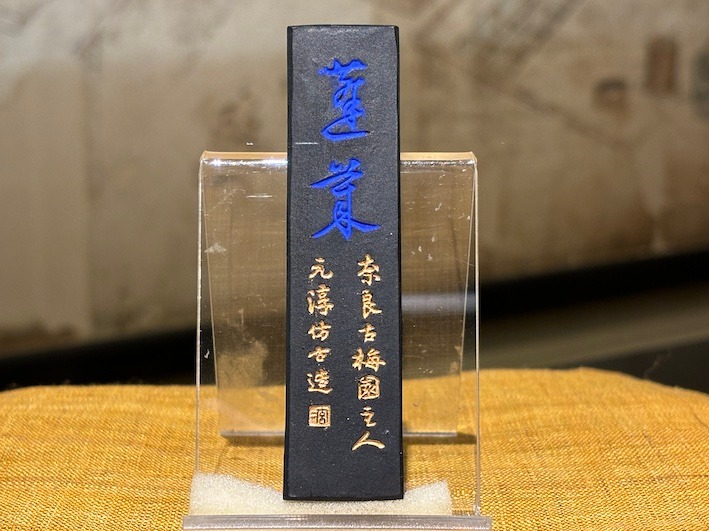 蓬莱
奈良古梅園主人
元淳仿古造